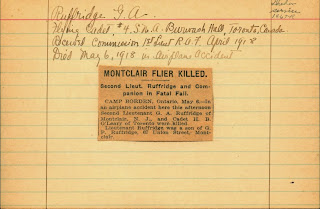 Ruffridge G. A.
Flying Cadet, #4. S. M. A. Burwash Hall, Toronto, Canada
Rec'vd Commission 1st Lieut R.A.F. April 1918
Died May 6, 1918 in Airplane Accident
MONTCLAIR FLIER KILLED.
Second Lieut. Ruffridge and Com-
panion in Fatal Fall.
CAMP BORDEN, Ontario, May 6.—In
an airplane accident here this afternoon
Second Lieutenant G. A. Ruffridge of
Montclair, N. J., and Cadet H. B.
O'Leary of Toronto were killed.
Lieutenant Ruffridge was a son of G.
P. Ruffridge, 67 Union Street, Mont-
clair.